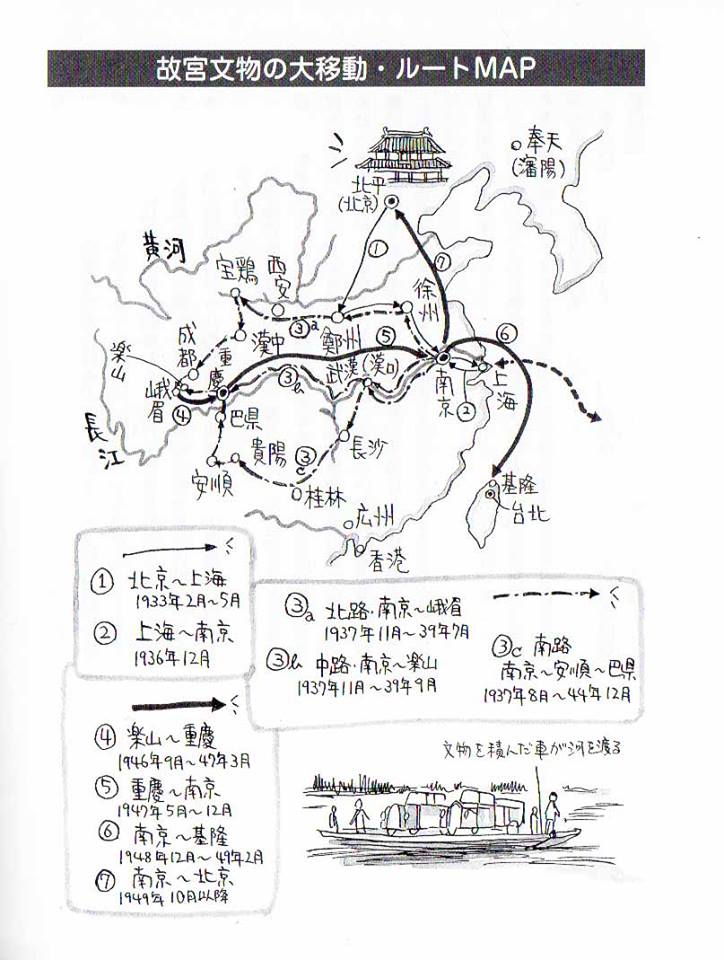 故宮文物の大移動・ルートMAP
奉天
(瀋陽)
北平
(北京)
黄河
宝鶏
西安
①
⑦
徐州
③a
鄭州
⑤
⑥
成都
漢中
楽山
重慶
武漢(漢口)
峨眉
④
③b
南京
②
上海
長江
巴県
貴陽
③c
長沙
安順
桂林
基隆
台北
広州
香港
① 北京～上海
1933年2月～5月
② 上海～南京
1936年12月
③a 北路・南京～峨眉
1937年11月～39年7月
③b 中路・南京～楽山
1937年11月～39年9月
③c 南路
南京～安順～巴県
1937年8月～44年12月
④ 楽山～重慶
1946年9月～47年3月
⑤ 重慶～南京
1947年5月～12月
⑥ 南京～基隆
1948年12月～49年2月
⑦ 南京～北京
1949年10月以降
文物を積んだ車が河を渡る